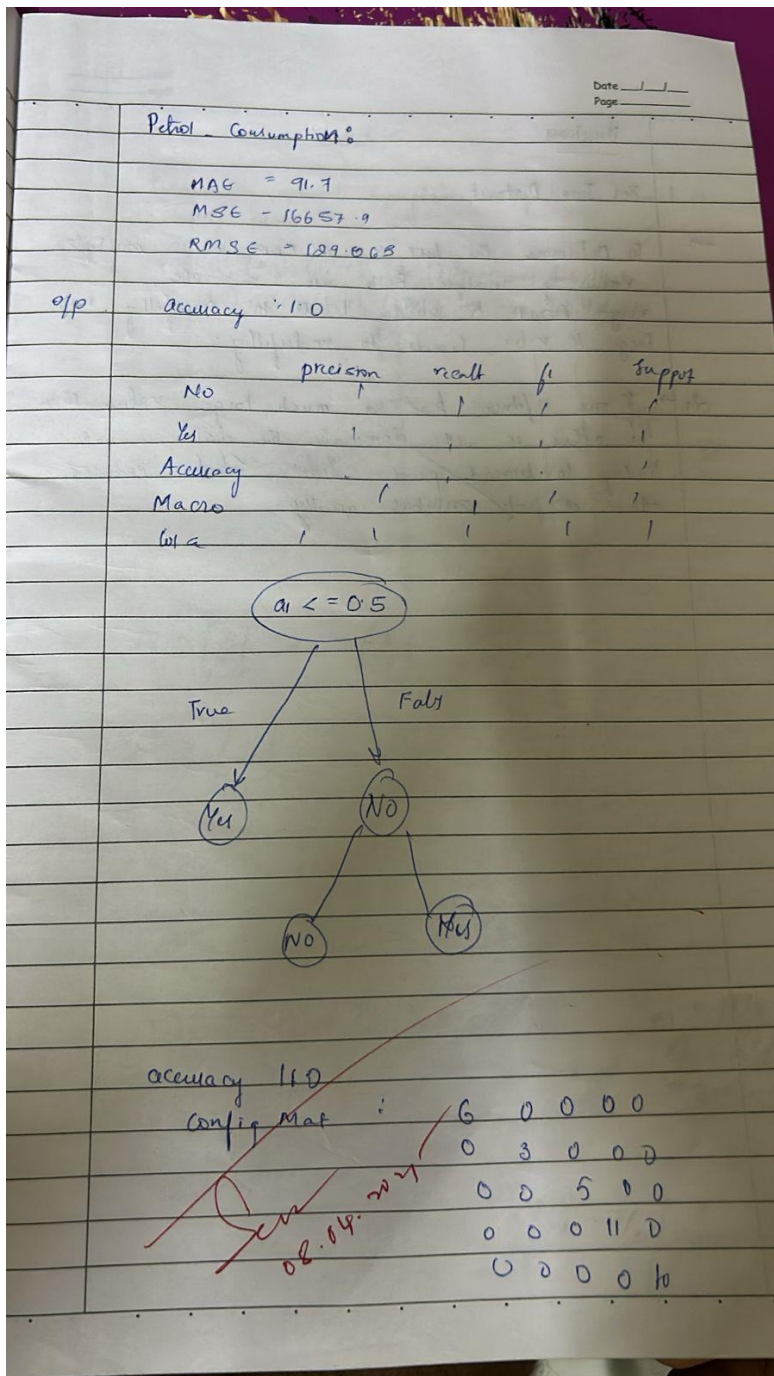 Date __/__/__
Page
Petrol - Consumption:
MAE = 91.7
MSE - 16657.9
RMSE = 129.063
o/p accuracy : 1.0
precision recall f1 Support
No 1 1 1 1
Yes 1 1 1 1
Accuracy 1
Macro 1 1 1 1
1 1 1 1 1
a1 <= 0.5
True Fals
Yes No
No Yes
accuracy 1.0
Config Mat : 6 0 0 0 0
0 3 0 0 0
0 0 5 0 0
0 0 0 11 0
0 0 0 0 10
08.04.2021